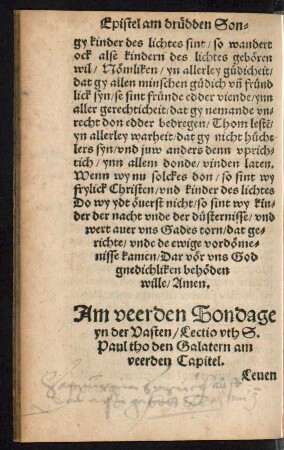 Epistel am drüdden Son-
gy kinder des lichtes sint/ so wandert
ock alse kindern des lichtes gebören
wil/ Nömliken/ yn allerley güdicheit/
dat gy allen minschen güdich vñ fründ
lick syn/ se sint fründe edder viende/ ynn
aller gerechticheit/ dat gy nemande vn-
recht don edder bedregen/ Thom lesten/
yn allerley warheit/ dat gy nicht hüche
lers syn/ vnd juw anders denn vprich-
tich/ ynn allem donde/ vinden laten.
Wenn wy nu solckes don/ so sint wy
frylick Christen/ vnd kinder des lichtes
Do wy ydt öuerst nicht/ so sint wy kin-
der der nacht vnde der düsternisse/ vnd
wert auer vns Gades torn/ dat ge-
richte/ vnde de ewige vordöme-
nisse kamen/ Dar vör vns God
gnedichliken behöden
wille/ Amen.
Am veerden Sondage
yn der Vasten/ Lectio vth S.
Paul tho den Galatern am
veerden Capitel.
Leuen